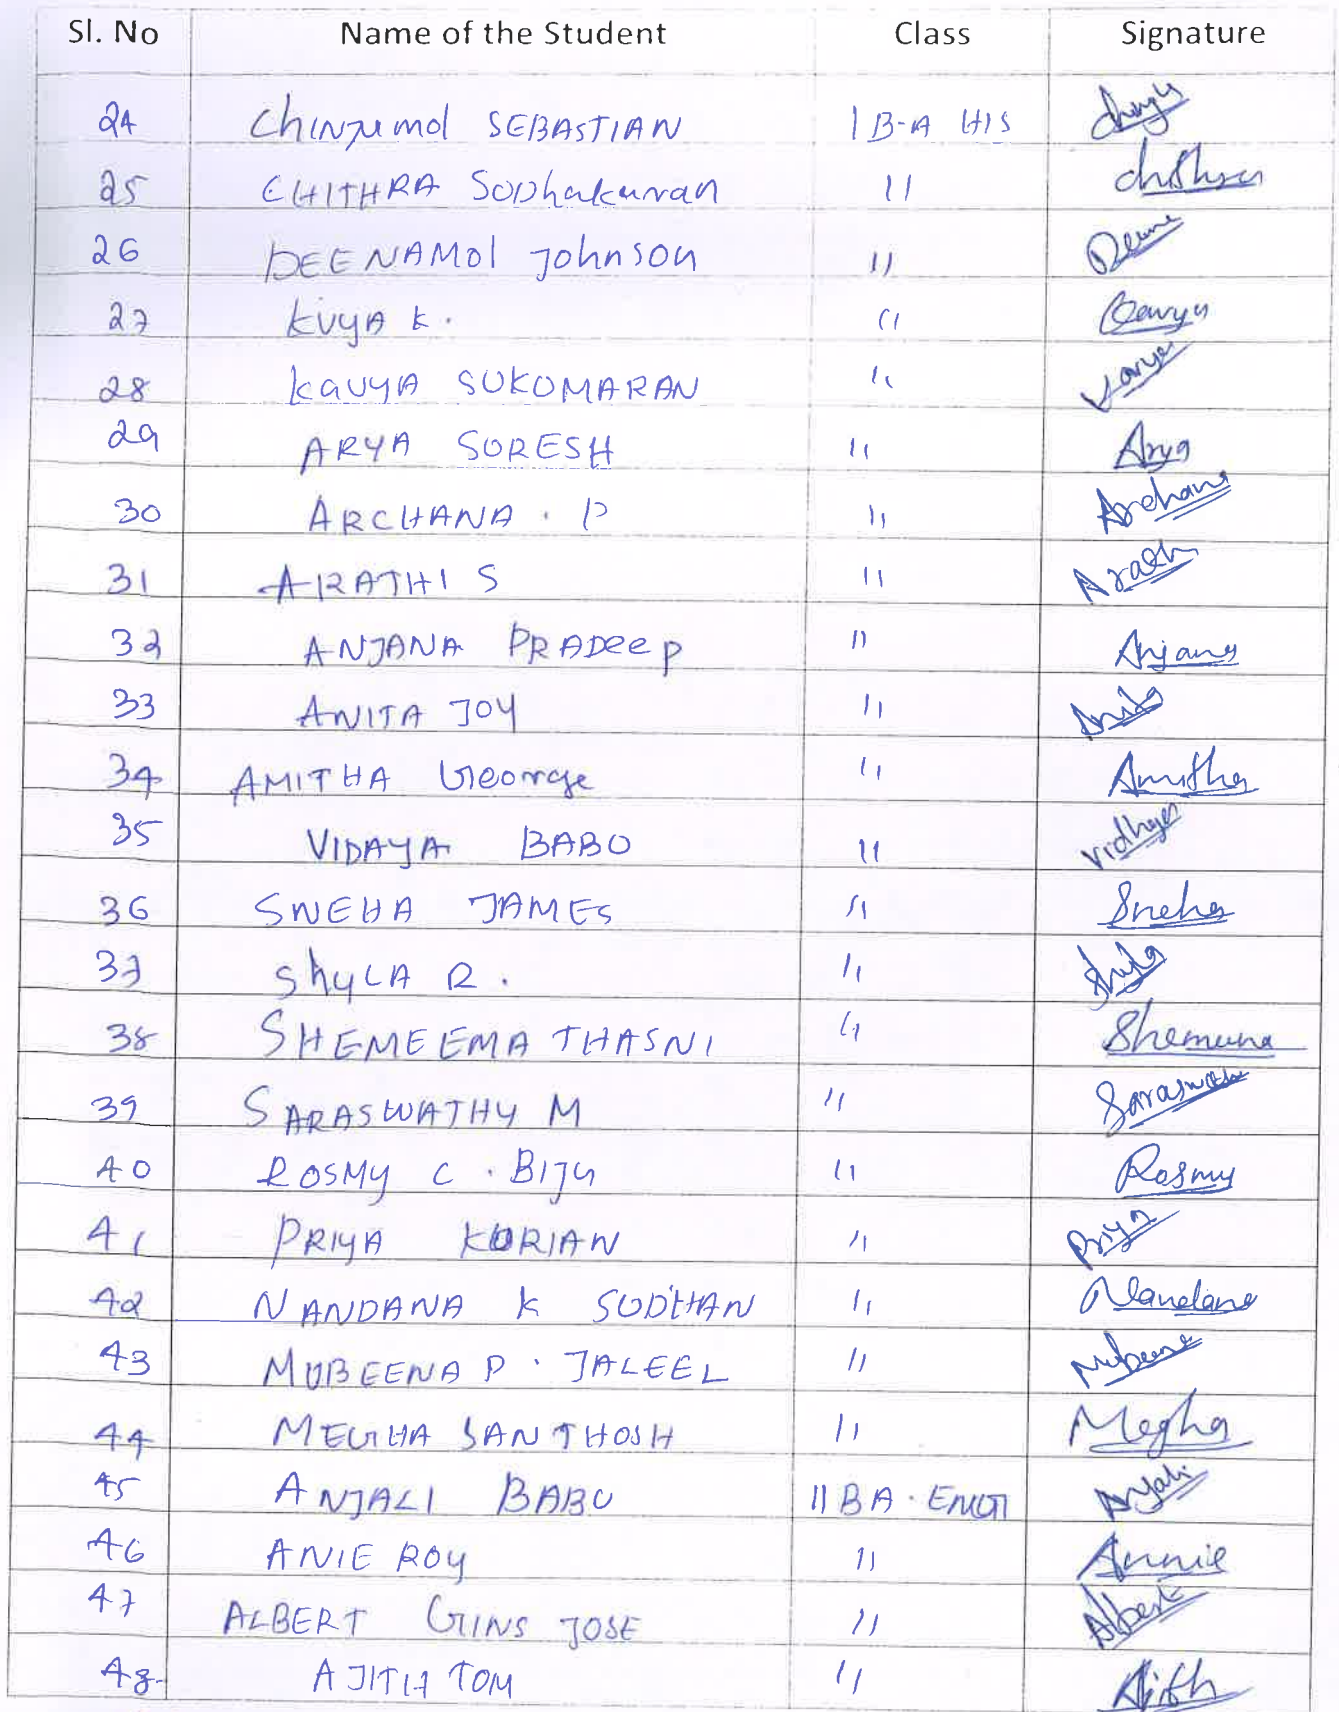 Sl. No Name of the Student Class Signature
24 Chinjumol SEBASTIAN I B-A HIS
25 CHITHRA SODhakuran " Chithra
26 DEENAMOl Johnson " Deena
27 KVyA K. "
28 KavyA SUKOMARAN " Kavya
29 ARYA SORESH " Arya
30 ARCHANA . P " Archana
31 ARATHI S " Arathi
32 ANJANA PRADeep " Anjana
33 ANITA JOY " Anita
34 AMITHA George " Amitha
35 VIDAYA BABO " Vidhya
36 SNEHA JAMES " Sneha
37 ShyLA R. " Shyla
38 SHEMEEMA THASNI "
39 SARASWATHY M " Saraswathy
40 ROSMY C . BIJU " Rosmy
41 PRIYA KORIAN " Priya
42 NANDANA K SUDHAN " Nandana
43 MUBEENA P . JALEEL " Mubeena
44 MEGHA SANTHOSH " Megha
45 ANJALI BABU II BA . Anjali
46 ANIE ROY " Annie
47 ALBERT GINS JOSE " Albert
48 AJITH TOM " Ajith